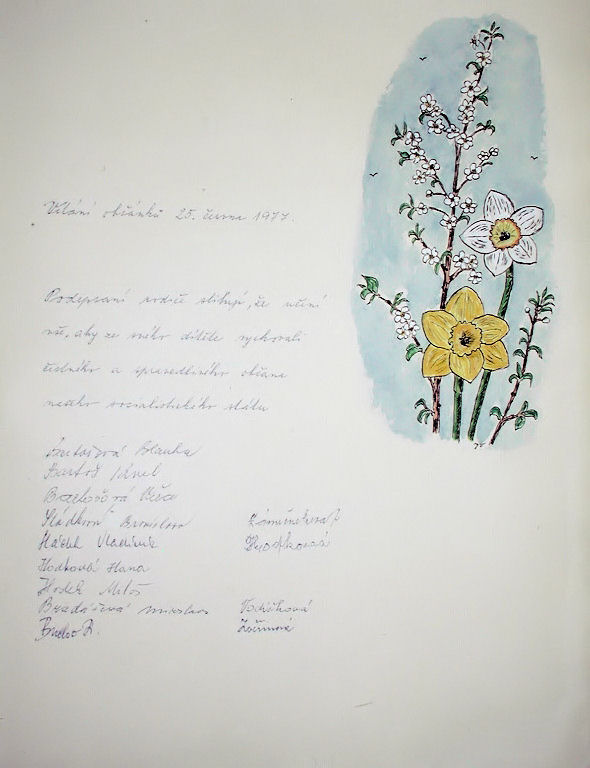 Vítání občánků 25. června 1977.
Podepsaní rodiče slibují, že učiní
vše, aby ze svého dítěte vychovali
čestného a spravedlivého občana
našeho socialistického státu
Bartošová Blanka
Bartoš Pavel
Sládková Bronislava
Sládek Vladimír
Hodková Hana
Hodek Miloš
Bradáčová Miroslava Vodičková